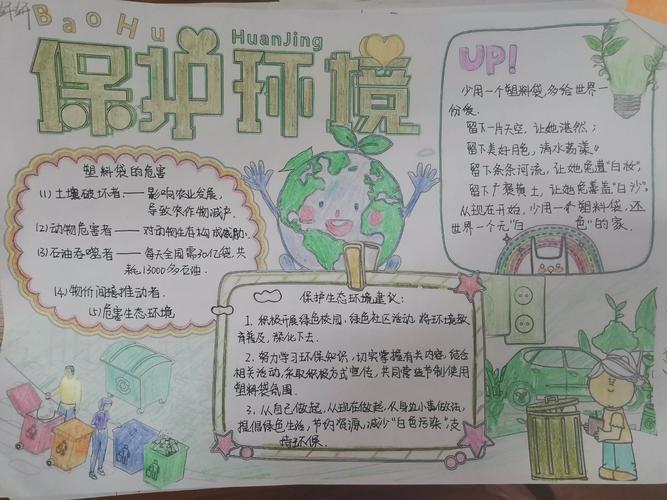 BaoHu HuanJing
保护环境
塑料袋的危害
(1)土壤破坏者——影响农业发展,
导致农作物减产.
(2)动物危害者——对动物生存构成威胁.
(3)石油吞噬者——每天全国需30亿袋,共
耗13000多石油.
(4)物价间接推动者.
(5)危害生态环境
UP!
少用一个塑料袋,多给世界一
份爱.
留下一片天空,让她湛然;
留下美好月色,清水荡漾.
留下条条河流,让她免遭“白妆”;
留下广袤横土,让她免蒙羞“白沙”.
从现在开始,少用一个塑料袋,还
世界一个无“白 色”的家.
保护生态环境建议:
1.积极开展绿色校园,绿色社区活动.将环境教
育普及,强化下去.
2.努力学习环保知识,切实掌握有关内容,结合
相关活动,采取积极方式宣传,共同营造节制使用
塑料袋氛围.
3.从自己做起,从现在做起,从身边小事做法,
提倡绿色生活,节约资源,减少“白色污染”,支
持环保.